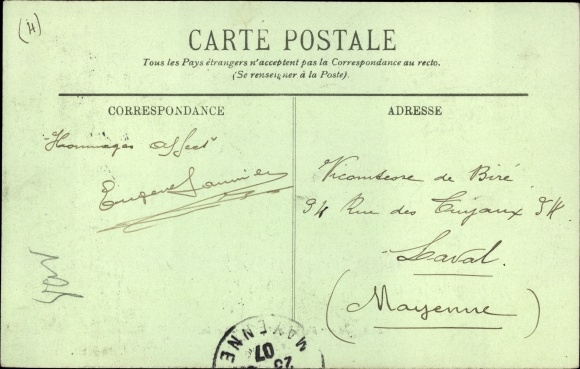 (4)
CARTE POSTALE
Tous les Pays étrangers n'acceptent pas la Correspondance au recto.
(Se renseigner à la Poste).
CORRESPONDANCE
Hommages affect
Eugène
ADRESSE
Vicomtesse de Biré
34 Rue des Tuyaux 34
Laval.
(Mayenne)
MAYENNE
07